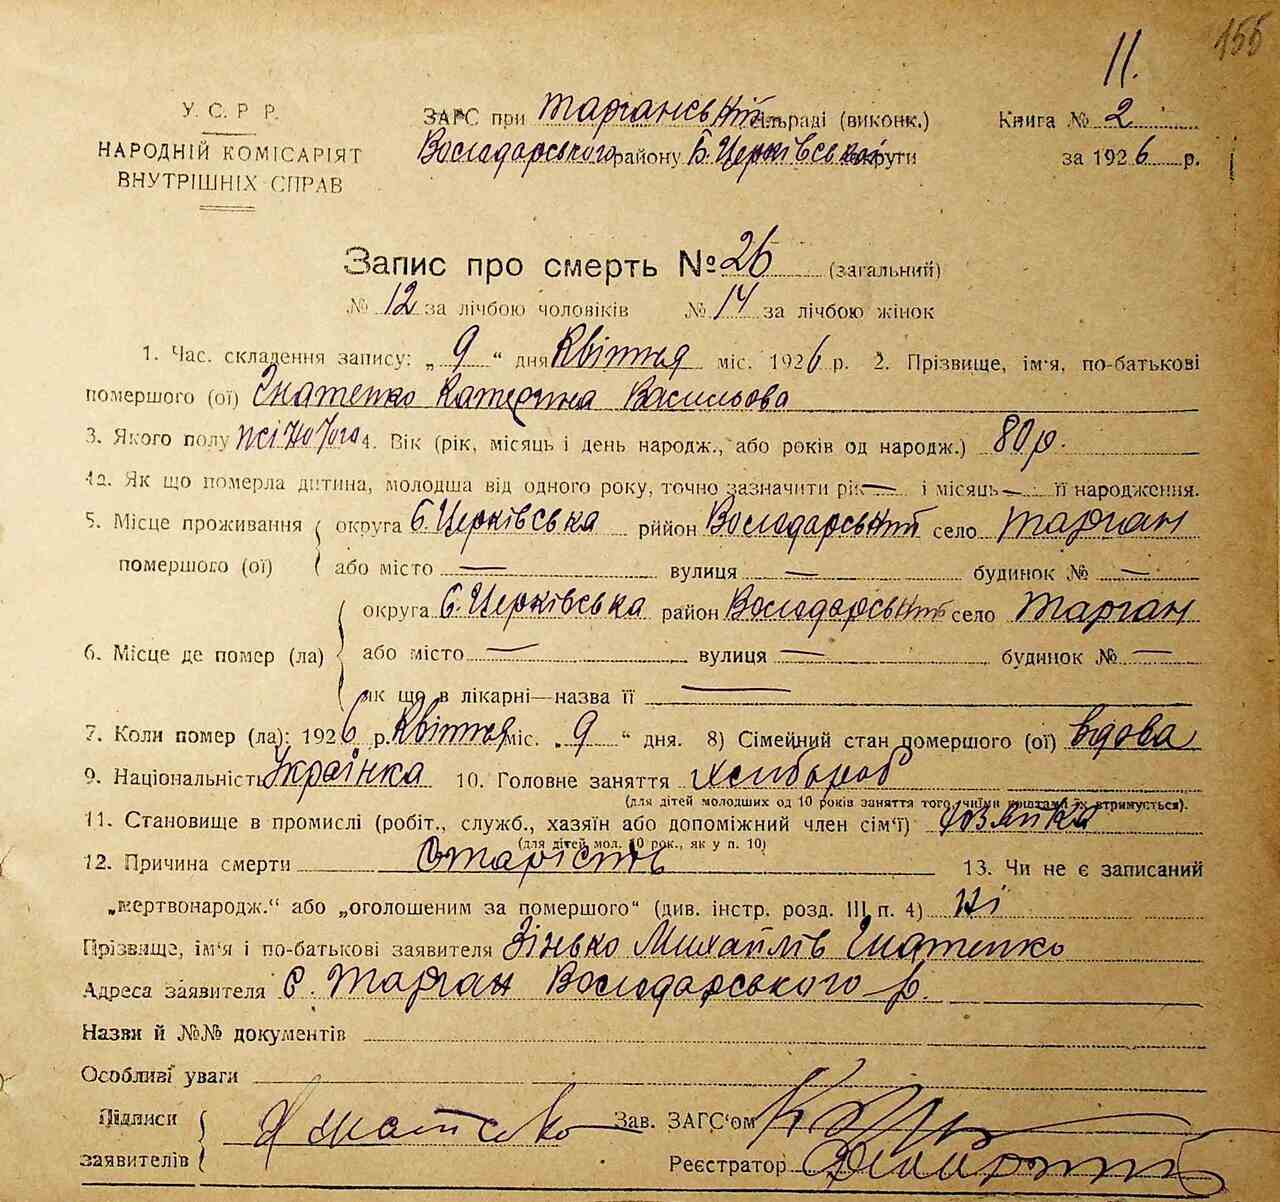 11.
155
У. С. Р. Р.
НАРОДНІЙ КОМІСАРІЯТ
ВНУТРІШНІХ СПРАВ
ЗАГС при Тарганській сільраді (виконк.)
Володарського району Б. Церківської округи
Книга № 2
за 1926 р.
Запис про смерть № 26 (загальний)
№ 12 за лічбою чоловіків № 14 за лічбою жінок
1. Час. складення запису: „ 9 “ дня Квітня міс. 1926 р. 2. Прізвище, ім'я, по-батькові
помершого (ої) Гнатенко Катерина Васильова
3. Якого полу жіночого 4. Вік (рік, місяць і день народж., або років од народж.) 80 р.
4а. Як що померла дитина, молодша від одного року, точно зазначити рік — і місяць — її народження.
5. Місце проживання помершого (ої) округа Б. Церківська рийон Володарський село Тарган
або місто — вулиця — будинок № —
округа Б. Церківська район Володарський село Тарган
6. Місце де помер (ла) або місто — вулиця — будинок № —
як що в лікарні—назва її —
7. Коли помер (ла): 1926 р. Квітня міс. „ 9 “ дня. 8) Сімейний стан помершого (ої) вдова
9. Національність Українка 10. Головне заняття Хлібороб
(для дітей молодших од 10 років заняття того, чіїми коштами їх втримується).
11. Становище в промислі (робіт., служб., хазяїн або допоміжний член сім'ї) хозяйка
(для дітей мол. 10 рок., як у п. 10)
12. Причина смерти Старість 13. Чи не є записаний
„мертвонародж.“ або „оголошеним за помершого“ (див. інстр. розд. III п. 4) Ні
Прізвище, ім'я і по-батькові заявителя Зінько Михайлів Гнатенко
Адреса заявителя С. Тарган Володарського р.
Назви й №№ документів
Особливі уваги
Підписи заявителів Гнатенко Зав. ЗАГС'ом
Реєстратор